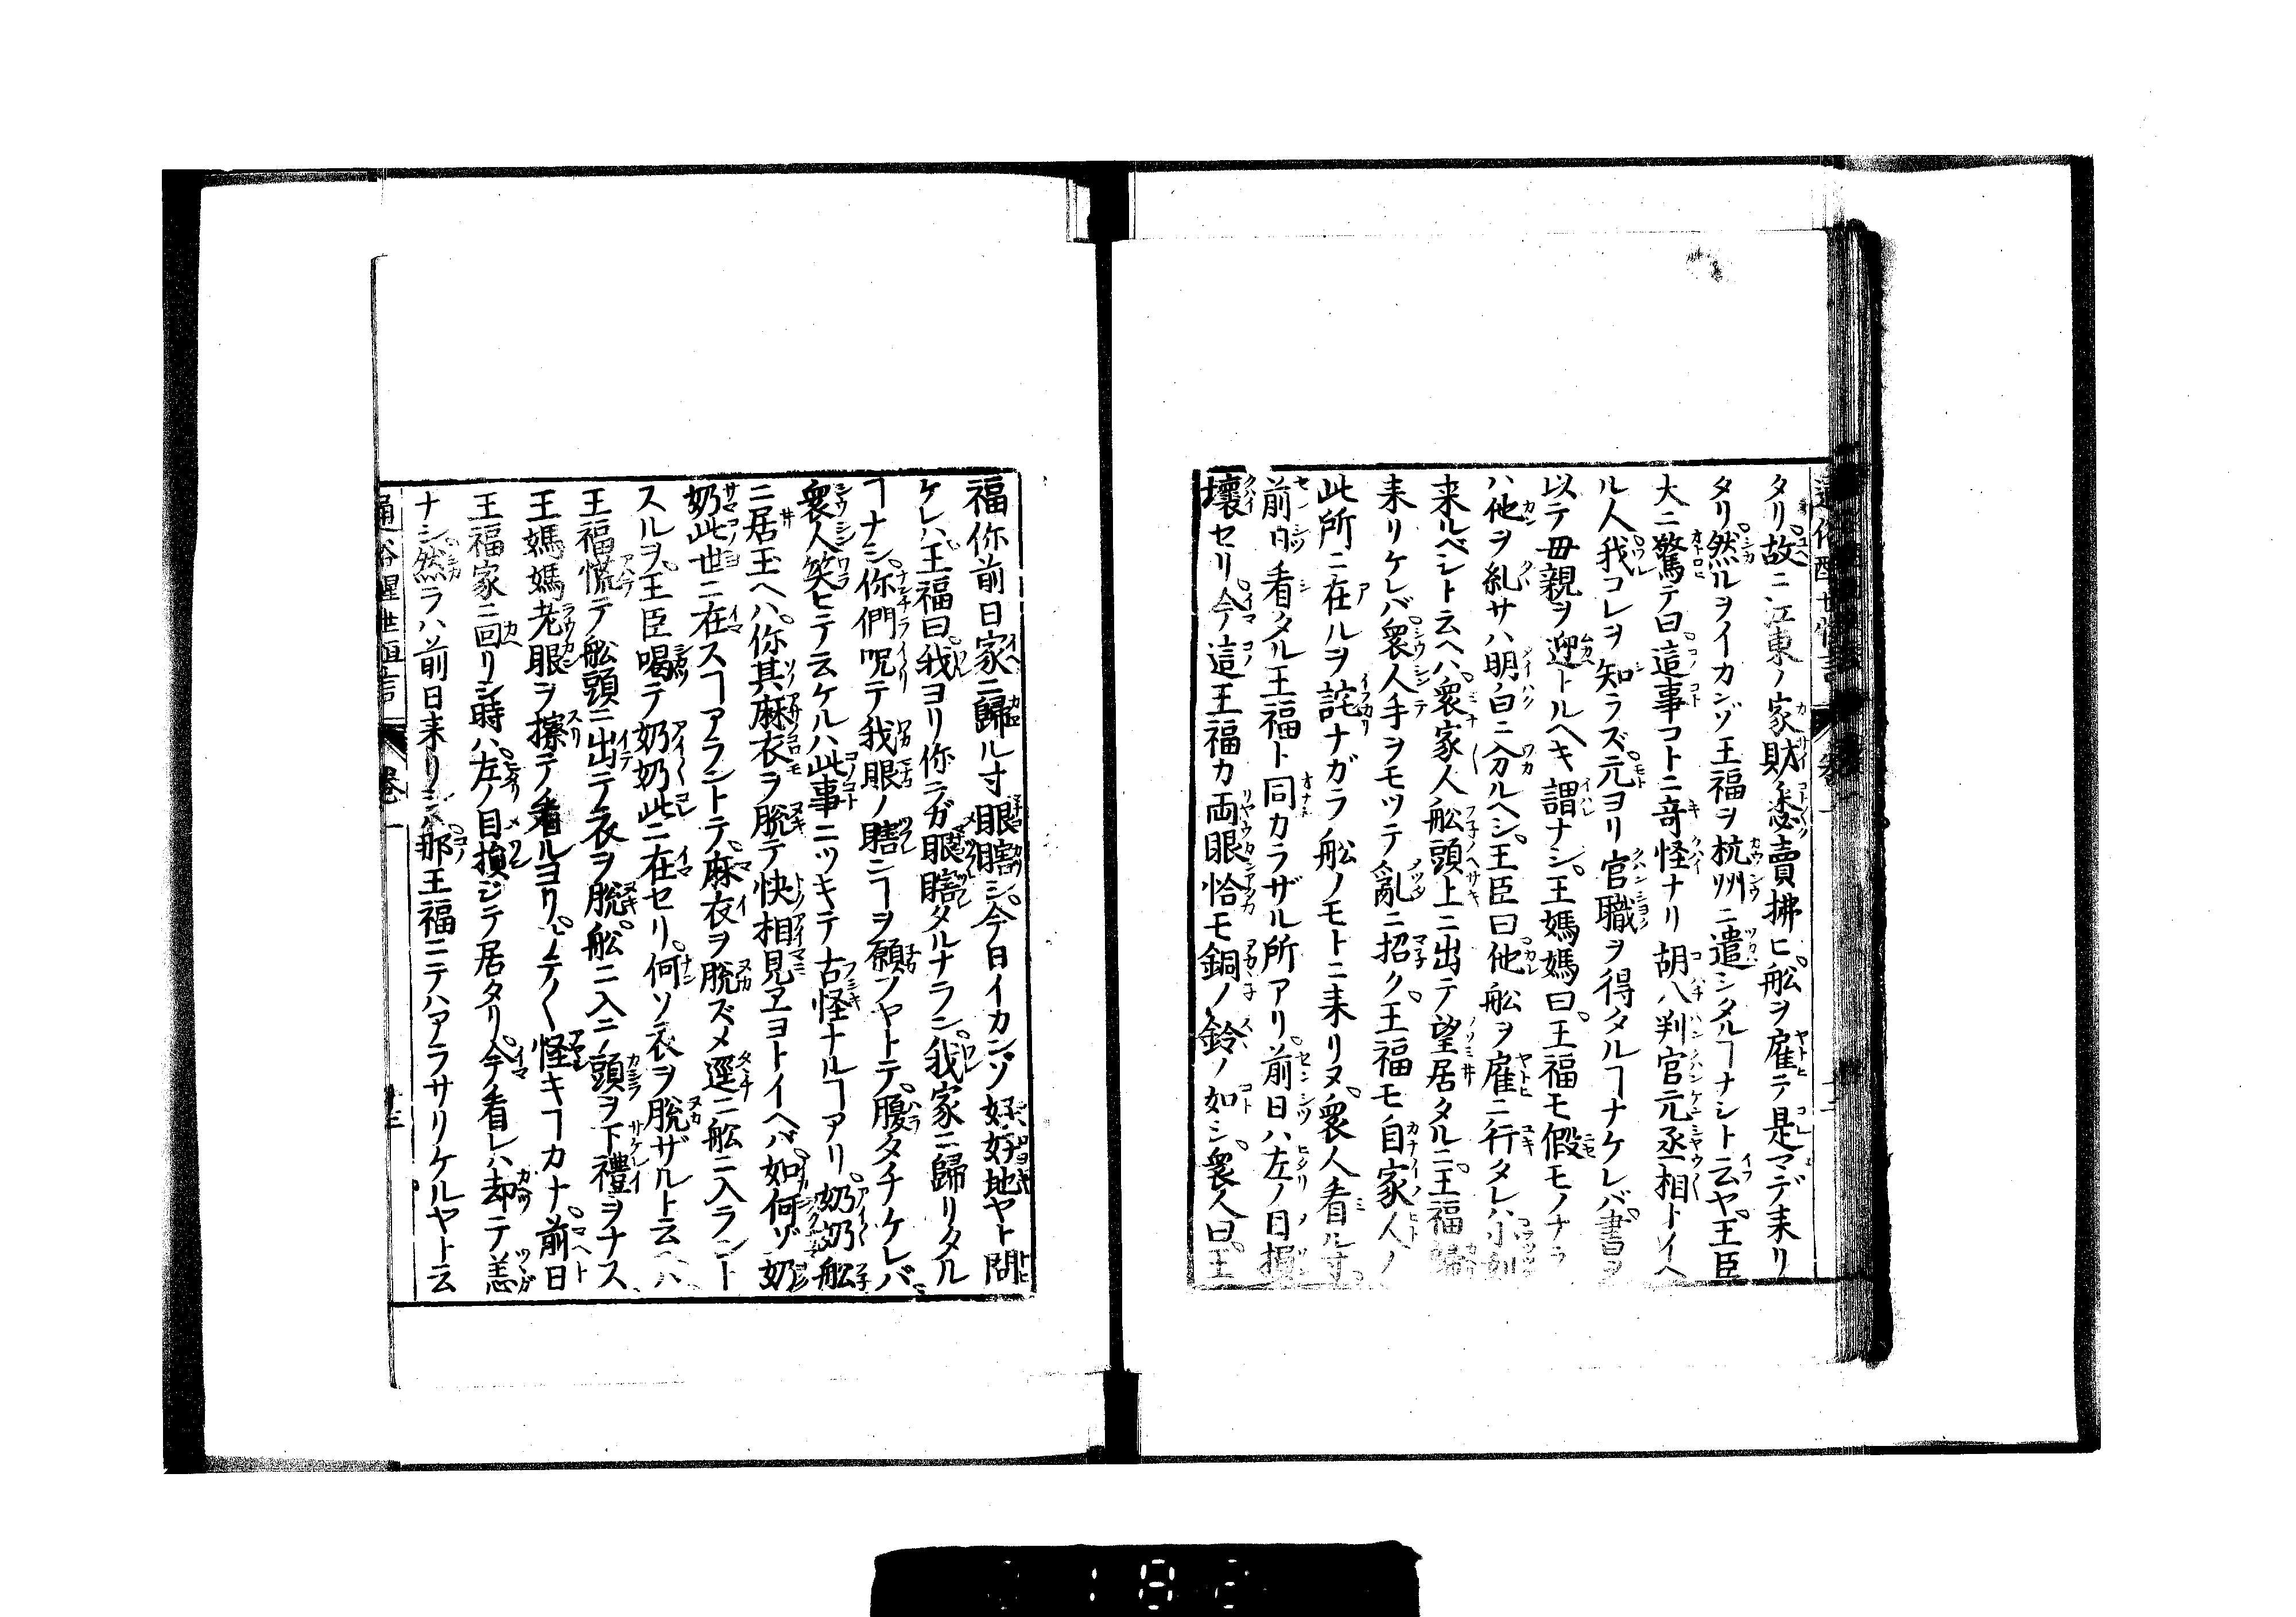 タリ。故ニ江東ノ家財ノ悉賣拂ヒ。舩ヲ雇テ是マデ来リ
タリ。然ルヲイカンゾ王福ヲ杭州ニ遣シタルヿナシト云ヤ。王臣
大ニ驚テ曰。這事コトニ竒怪ナリ胡八判官元丞相トイヘ
ル人我コレヲ知ラズ。元ヨリ官職ヲ得タルヿナケレバ。書ヲ
以テ毋親ヲ迎トルヘキ謂ナシ。王媽媽曰。王福モ假モノナラ
ハ他ヲ糺サハ明白ニ分ルヘシ。王臣曰他舩ヲ雇ニ行タレハ
来ルベシト云ヘハ。衆家人舩頭上ニ出テ望居タルニ。王福歸
来リケレバ。衆人手ヲモツテ亂ニ招ク。王福モ自家人ノ
此所ニ在ルヲ詫ナガラ舩ノモトニ来リヌ。衆人看ル寸。
前日看タル王福ト同カラザル所アリ。前日ハ左ノ目損
壞セリ。今這王福カ両眼恰モ銅ノ鈴ノ如シ。衆人曰。王
福你前日家ニ歸ル寸眼瞎シ。今日イカンソ好好地ヤト問
ケレハ。王福曰。我ヨリ你ラガ眼瞎タルナラン。我家ニ歸リタル
ヿナシ。你們呪テ我眼ノ瞎ニヿヲ願フヤトテ。腹タチケレバ
衆人笑ヒテ云ケルハ此事ニツキテ古怪ナルヿアリ。奶奶舩
ニ居玉ヘハ。你其麻衣ヲ脱テ快相見ヱヨトイヘバ。如何ゾ奶
奶此世ニ在スヿアラントテ。麻衣ヲ脱ズメ逕ニ舩ニ入ラント
スルヲ。王臣喝テ奶奶此ニ在セリ。何ソ衣ヲ脱ザルト云ハ
王福慌テ舩頭ニ出テ衣ヲ脱。舩ニ入ニ頭ヲ下禮ヲナス
王媽媽老眼ヲ擦テ看ルヨリ。テ〳〵怪キヿカナ。前日
王福家ニ回リシ時ハ。左ノ目損ジテ居タリ。今看レハ却テ恙
ナシ。然ラハ前日来リシハ。那王福ニテハアラサリケルヤト云
通俗醒世恒言 卷一 十三